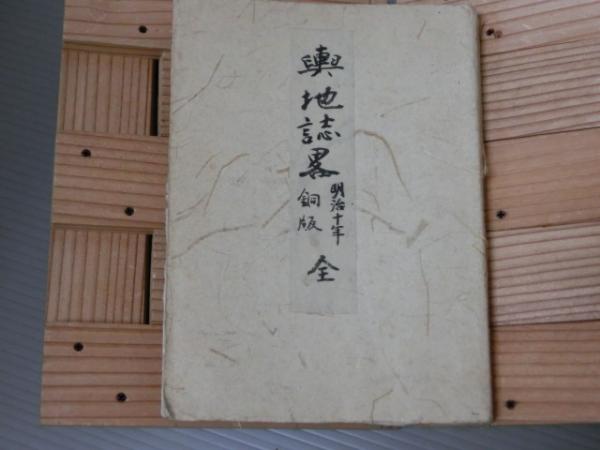 輿地誌畧
明治十年
銅版
全